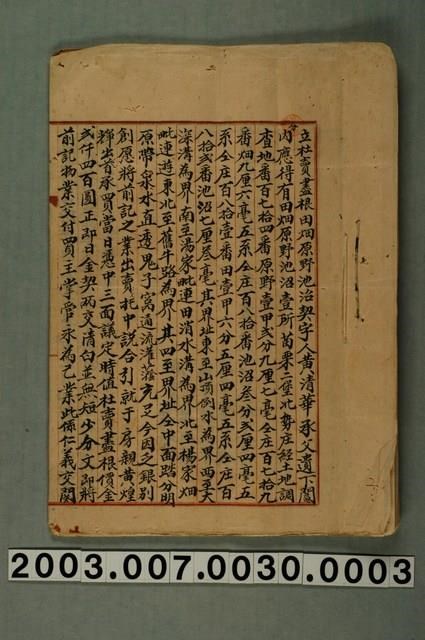 立杜賣盡根田畑原野池沼契字人黃清華承父遺下鬮
內應得有田畑原野池沼壹所苗栗二堡北勢庄經土地調
查地番百七拾四番原野壹甲弍分九厘七毫仝庄百七拾九
番畑九厘六毫五系仝庄百八拾番池沼叁分弍厘四毫五
系仝庄百八拾壹番田壹甲六分五厘四毫五系仝庄百
八拾弍番池沼七厘叁毫其界址東至山頂倒水為界西至大
深溝為界南至湯家毗連田消水溝為界北至楊家畑
毗連遊東北至舊牛路為界其四至界址仝中面踏分明
原帶泉水直透鬼子窩通流灌蔭充足今因乏銀別
創愿將前記之業出賣托中說合引就于房親黃煌
輝出首承買當日憑中三面議定時值杜賣盡根價金
弍仟四百圓正即日金契兩交清白並無短少分文即將
前記物業交付買主掌管永為己業此係仁義交關
2003.007.0030.0003